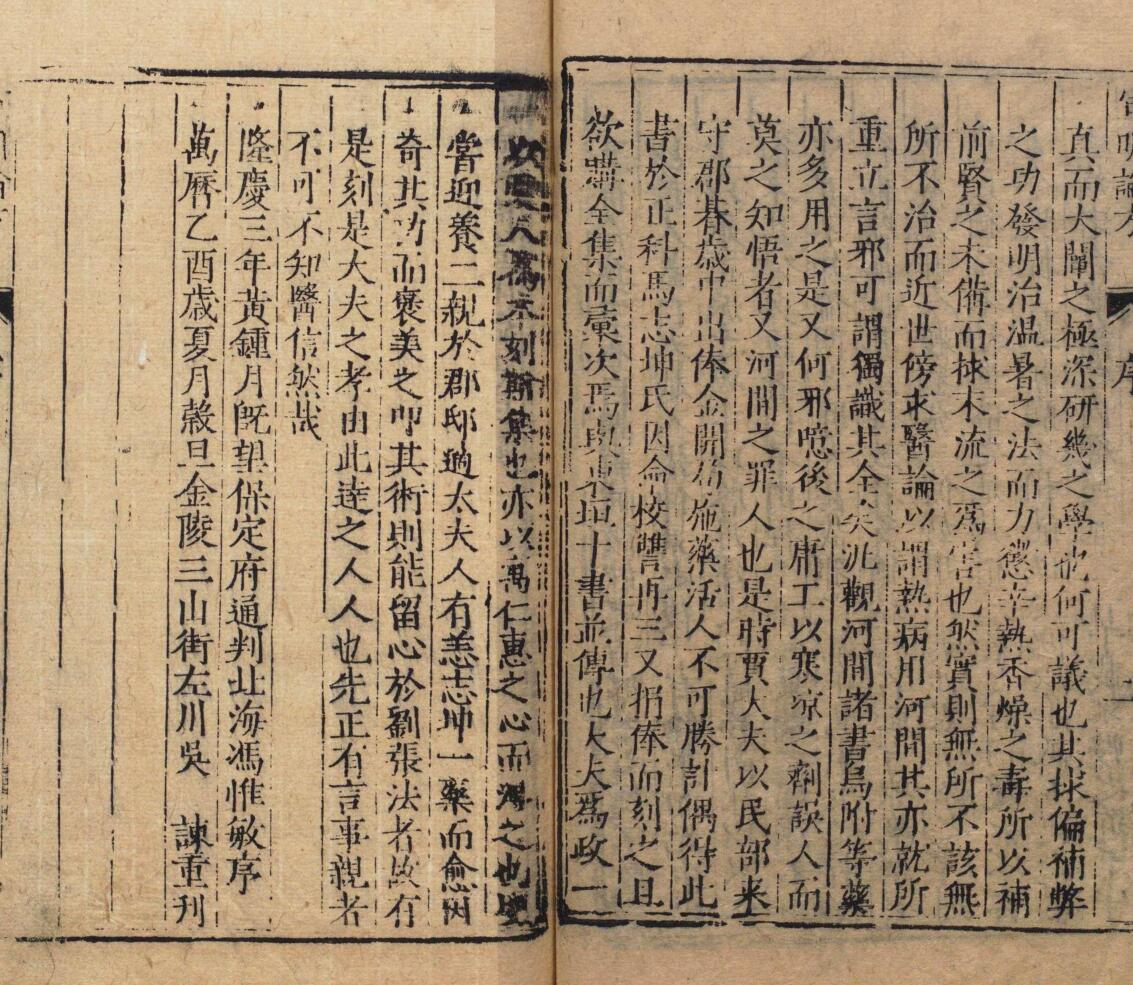 宣明論方
序
真而大闡之極深研幾之學也何可議也其救偏補弊
之功發明治温暑之法而力懲辛熱香燥之毒所以補
前賢之未備而救末流之爲害也然實則無所不該無
所不治而近世傍求醫論以謂熱病用河間其亦就所
重立言邪可謂獨識其全矣況觀河間諸書烏附等藥
亦多用之是又何邪噫後之庸工以寒凉之劑誤人而
莫之知悟者又河間之罪人也是時賈大夫以民部来
守郡朞歲中出俸金開局施藥活人不可勝計偶得此
書於正科馬志坤氏因命校讐再三又捐俸而刻之且
欲購全集而彙次焉與東垣十書並傳也大夫爲政一
以人爲本刻斯集也亦以萬仁惠之心而之也
嘗迎養二親於郡邸適太夫人有恙志坤一藥而愈因
奇其功而褒美之叩其術則能留心於劉張法者故有
是刻是大夫之孝由此達之人人也先正有言事親者
不可不知醫信然哉
隆慶三年黃鍾月旣望保定府通判北海馮惟敏序
萬曆乙酉歲夏月榖旦金陵三山街左川吳 諫重刊